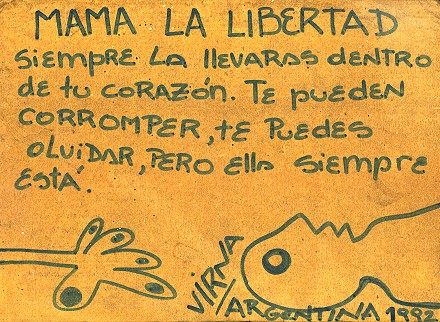 MAMA LA LIBERTAD
SIEMPRE LA LLEVARAS DENTRO
DE TU CORAZÓN. TE PUEDEN
CORROMPER, TE PUEDES
OLVIDAR, PERO ELLA SIEMPRE
ESTÁ.
VIRNA
ARGENTINA 1992